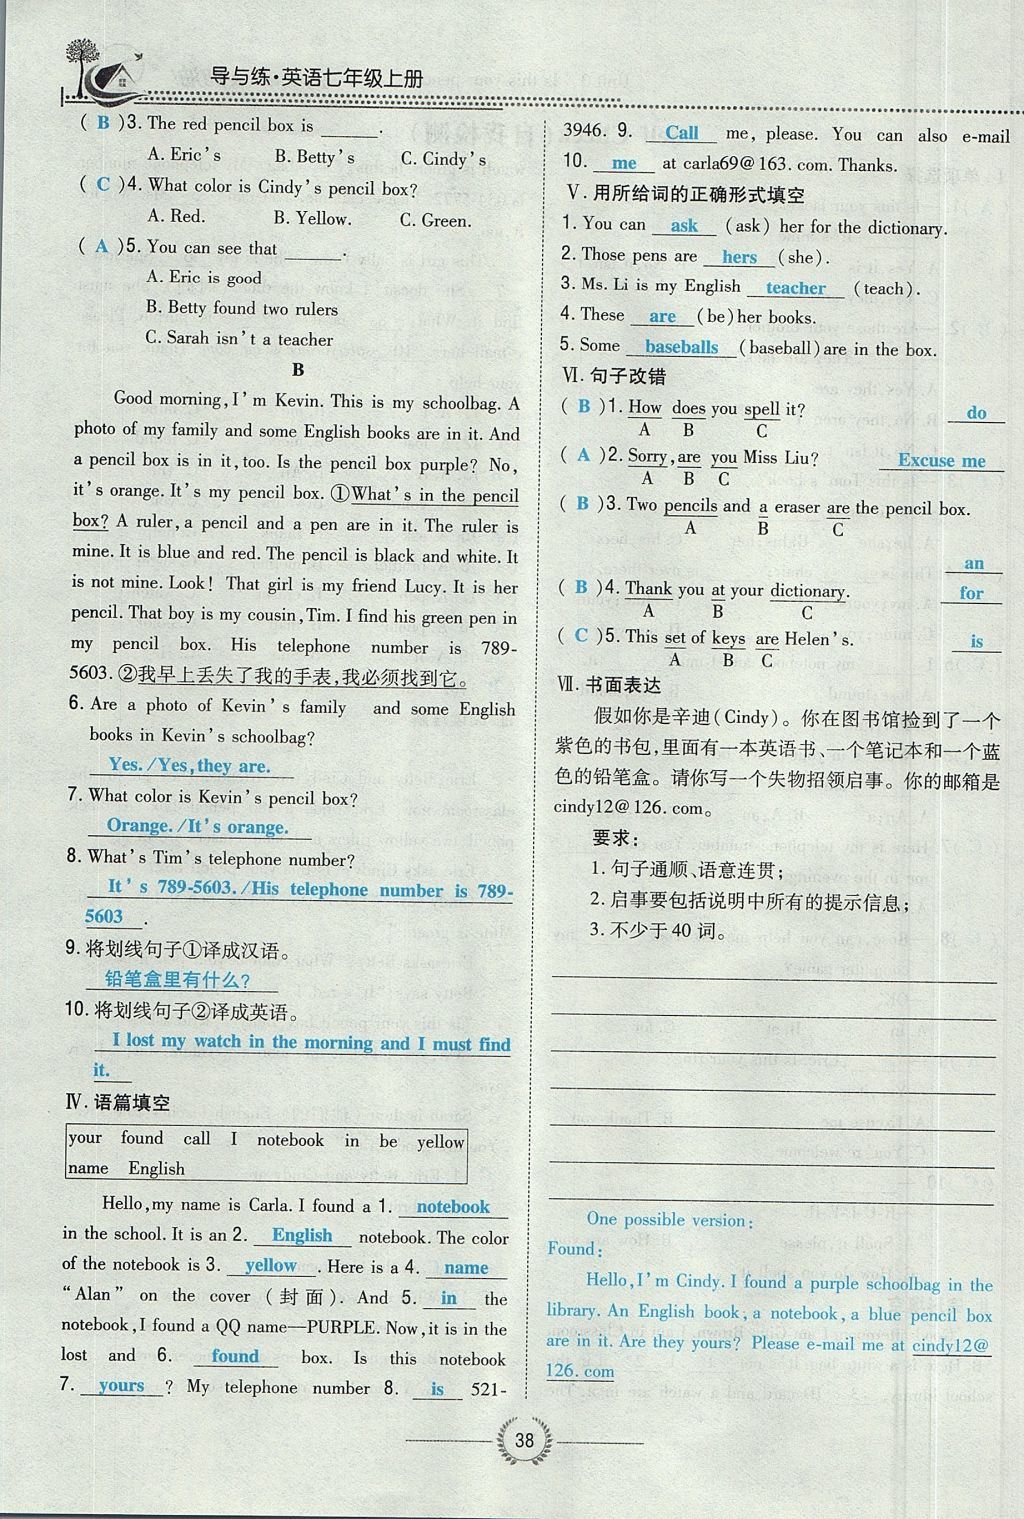 导与练·英语七年级上册
( B )3. The red pencil box is ______.
A. Eric's B. Betty's C. Cindy's
( C )4. What color is Cindy's pencil box?
A. Red. B. Yellow. C. Green.
( A )5. You can see that ______.
A. Eric is good
B. Betty found two rulers
C. Sarah isn't a teacher
B
Good morning, I'm Kevin. This is my schoolbag. A
photo of my family and some English books are in it. And
a pencil box is in it, too. Is the pencil box purple? No,
it's orange. It's my pencil box. ①What's in the pencil
box? A ruler, a pencil and a pen are in it. The ruler is
mine. It is blue and red. The pencil is black and white. It
is not mine. Look! That girl is my friend Lucy. It is her
pencil. That boy is my cousin, Tim. I find his green pen in
my pencil box. His telephone number is 789-
5603. ②我早上丢失了我的手表,我必须找到它。
6. Are a photo of Kevin's family and some English
books in Kevin's schoolbag?
Yes. /Yes, they are.
7. What color is Kevin's pencil box?
Orange. /It's orange.
8. What's Tim's telephone number?
It's 789-5603. /His telephone number is 789-
5603 .
9. 将划线句子①译成汉语。
铅笔盒里有什么?
10. 将划线句子②译成英语。
I lost my watch in the morning and I must find
it.
Ⅳ. 语篇填空
your found call I notebook in be yellow
name English
Hello, my name is Carla. I found a 1. notebook
in the school. It is an 2. English notebook. The color
of the notebook is 3. yellow . Here is a 4. name
"Alan" on the cover (封面). And 5. in the
notebook, I found a QQ name—PURPLE. Now, it is in the
lost and 6. found box. Is this notebook
7. yours ? My telephone number 8. is 521-
3946. 9. Call me, please. You can also e-mail
10. me at carla69@163.com. Thanks.
Ⅴ. 用所给词的正确形式填空
1. You can ask (ask) her for the dictionary.
2. Those pens are hers (she).
3. Ms. Li is my English teacher (teach).
4. These are (be)her books.
5. Some baseballs (baseball)are in the box.
Ⅵ. 句子改错
( B )1. How does you spell it? do
A B C
( A )2. Sorry, are you Miss Liu? Excuse me
A B C
( B )3. Two pencils and a eraser are the pencil box.
A B C
an
( B )4. Thank you at your dictionary. for
A B C
( C )5. This set of keys are Helen's. is
A B C
Ⅶ. 书面表达
假如你是辛迪(Cindy)。你在图书馆捡到了一个
紫色的书包,里面有一本英语书、一个笔记本和一个蓝
色的铅笔盒。请你写一个失物招领启事。你的邮箱是
cindy12@126.com。
要求:
1. 句子通顺、语意连贯;
2. 启事要包括说明中所有的提示信息;
3. 不少于 40 词。
One possible version:
Found:
Hello, I'm Cindy. I found a purple schoolbag in the
library. An English book, a notebook, a blue pencil box
are in it. Are they yours? Please e-mail me at cindy12@
126.com
38